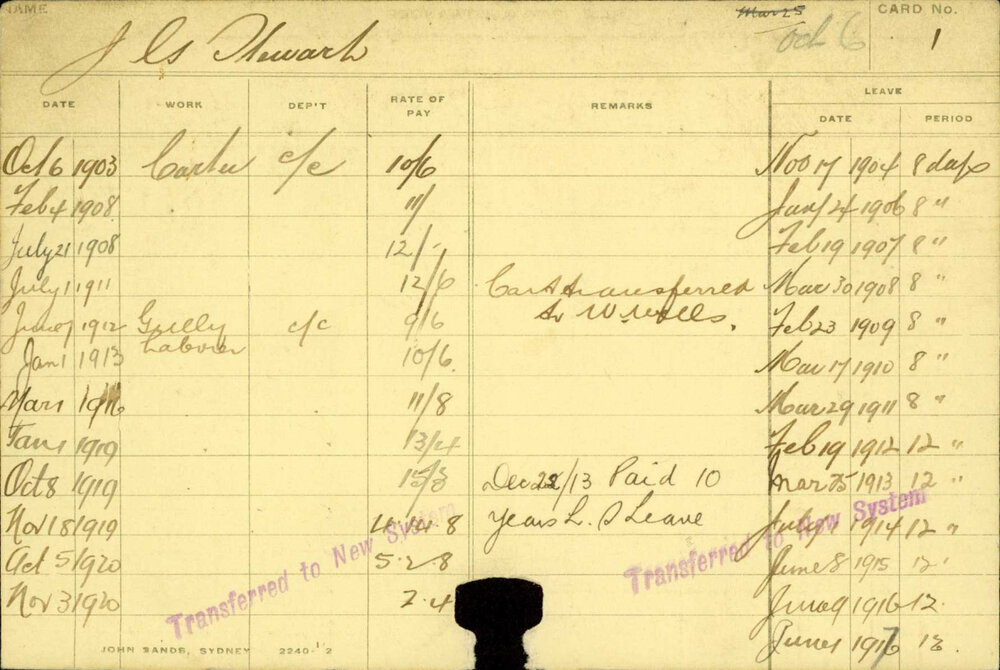 NAME
Mar 25
Oct 6
CARD No.
1
J Stewart
DATE WORK DEP'T RATE OF PAY REMARKS LEAVE
DATE PERIOD
Oct 6 1903 Carter c/c 10/6 Nov 17 1904 8 days
Feb 4 1908 11/ Jany 24 1906 8 "
July 21 1908 12/- Feb 19 1907 8 "
July 1 1911 12/6 Cart transferred Mar 30 1908 8 "
to W. Wells.
June 1 1912 Gully c/c 9/6 Feb 23 1909 8 "
Labourer
Jan 1 1913 10/6 Mar 17 1910 8 "
Mar 1 1916 11/8 Mar 29 1911 8 "
Jan 1 1919 13/4 Feb 19 1912 12 "
Oct 8 1919 15/3 Dec 22/13 Paid 10 Mar 25 1913 12 "
Nov 18 1919 4.14.8 Years L. S Leave July 1914 12 "
Oct 5 1920 5.2.8 June 8 1915 12 "
Nov 3 1920 2.4 June 9 1916 12.
June 1 1917 12.
Transferred to New System
Transferred to New System
JOHN SANDS, SYDNEY 2240-12